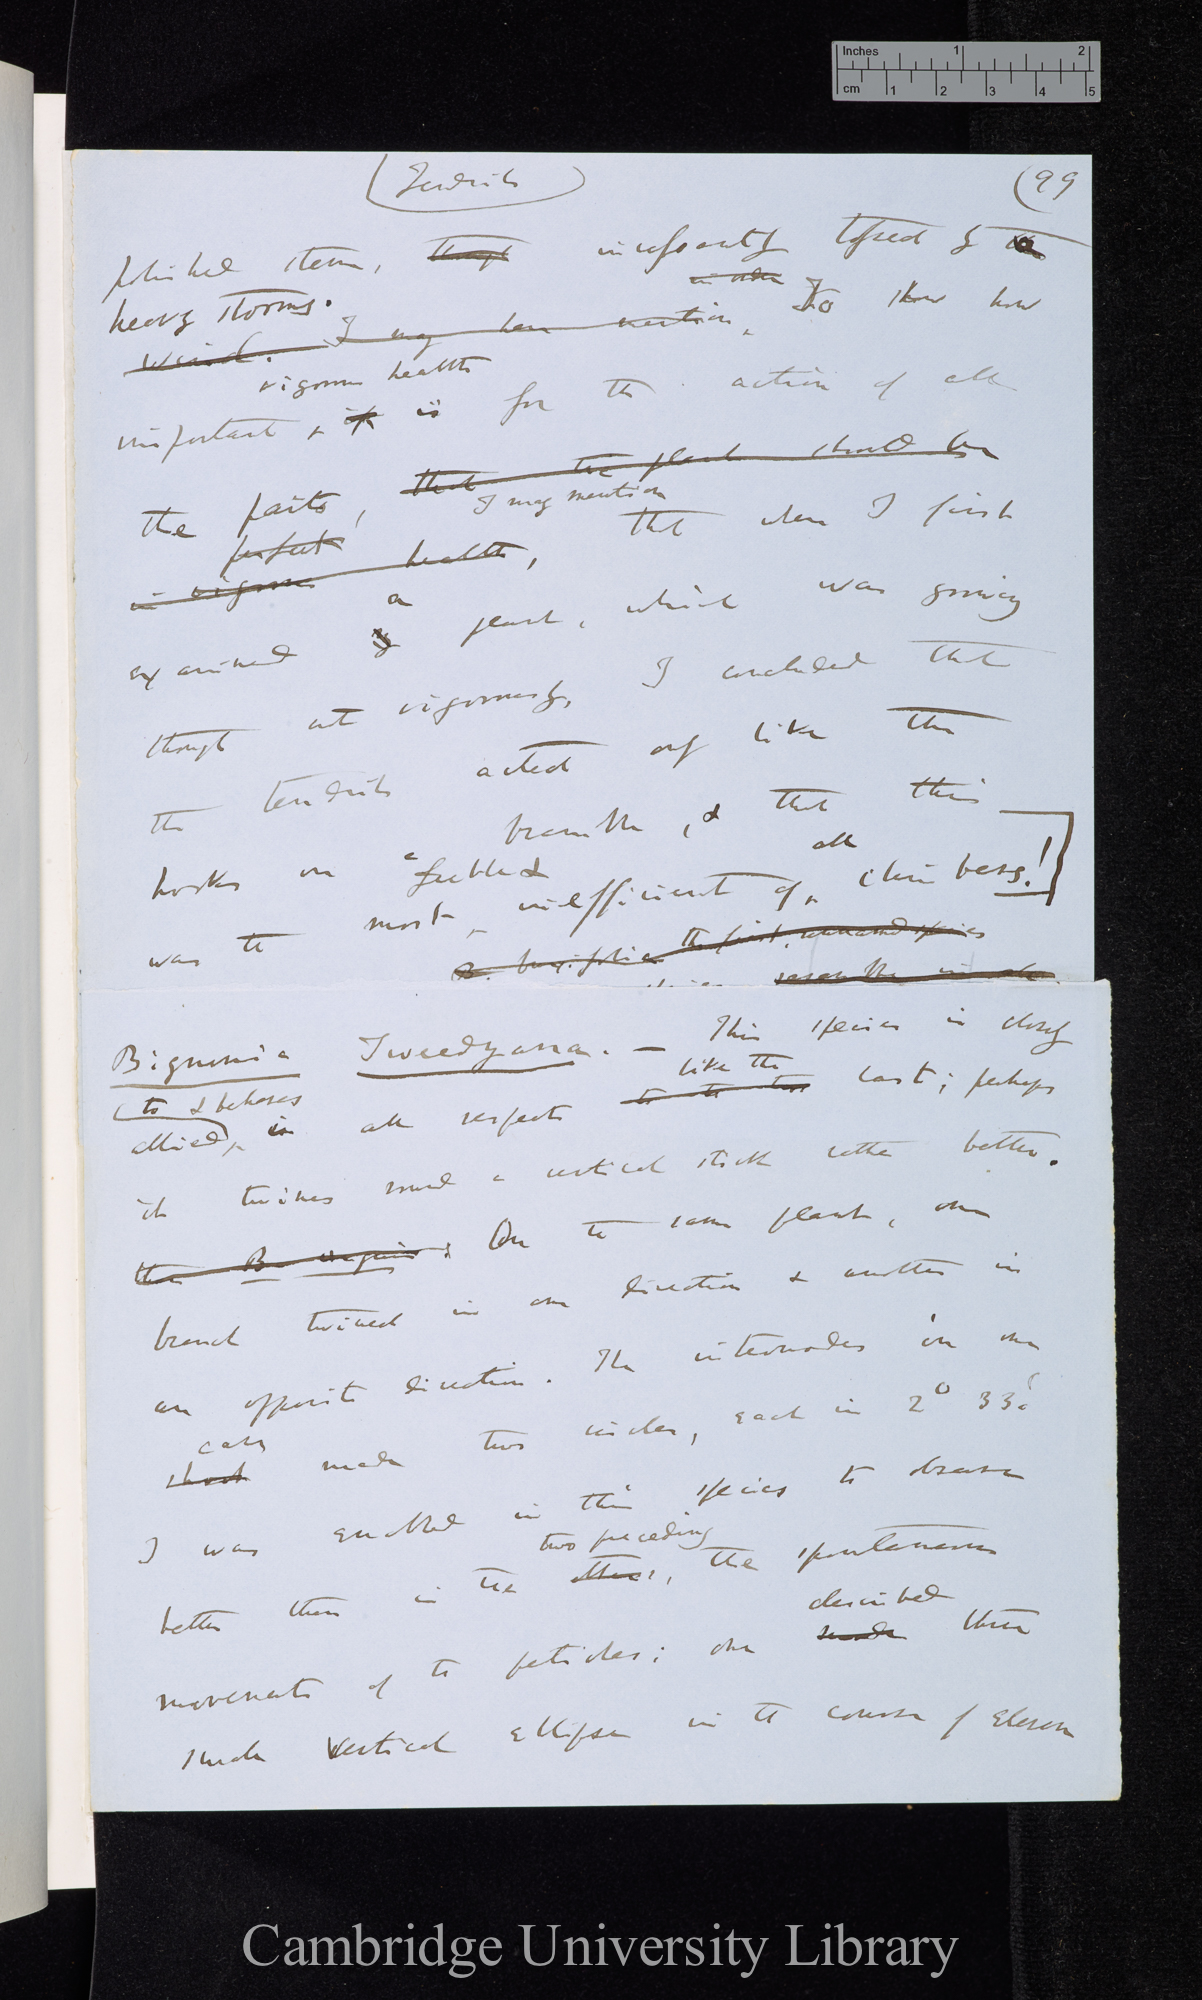 Inches 1 2
cm 1 2 3 4 5
(Tendrils) (99
polished stem, though incessantly tossed by
heavy storms. in order To show how
wind. I may here mention,
vigorous health
important, it is for the action of all
the parts, that the plant should be
perfect I may mention
in vigorous health, that when I first
a
examined plant, which was growing
though not vigorously, I concluded that
the tendrils acted only like the
hooks on a bramble, & that this
feeble & all
was the most inefficient of climbers!
B. the first, unnamed species
Bignonia Tweedyana. — This species is closely
to & behaves like the
allied, in all respects to the two last; perhaps
it twines round a vertical stick rather better.
than B. unguis. On the same plant, one
branch twined in one direction & another in
an opposite direction. The internodes in one
case
shoot made two circles, each in 2° 33'.
I was enabled in this species to observe
two preceding
better than in the others, the spontaneous
described
movements of the petioles; one made three
small vertical ellipses in the course of eleven
Cambridge University Library